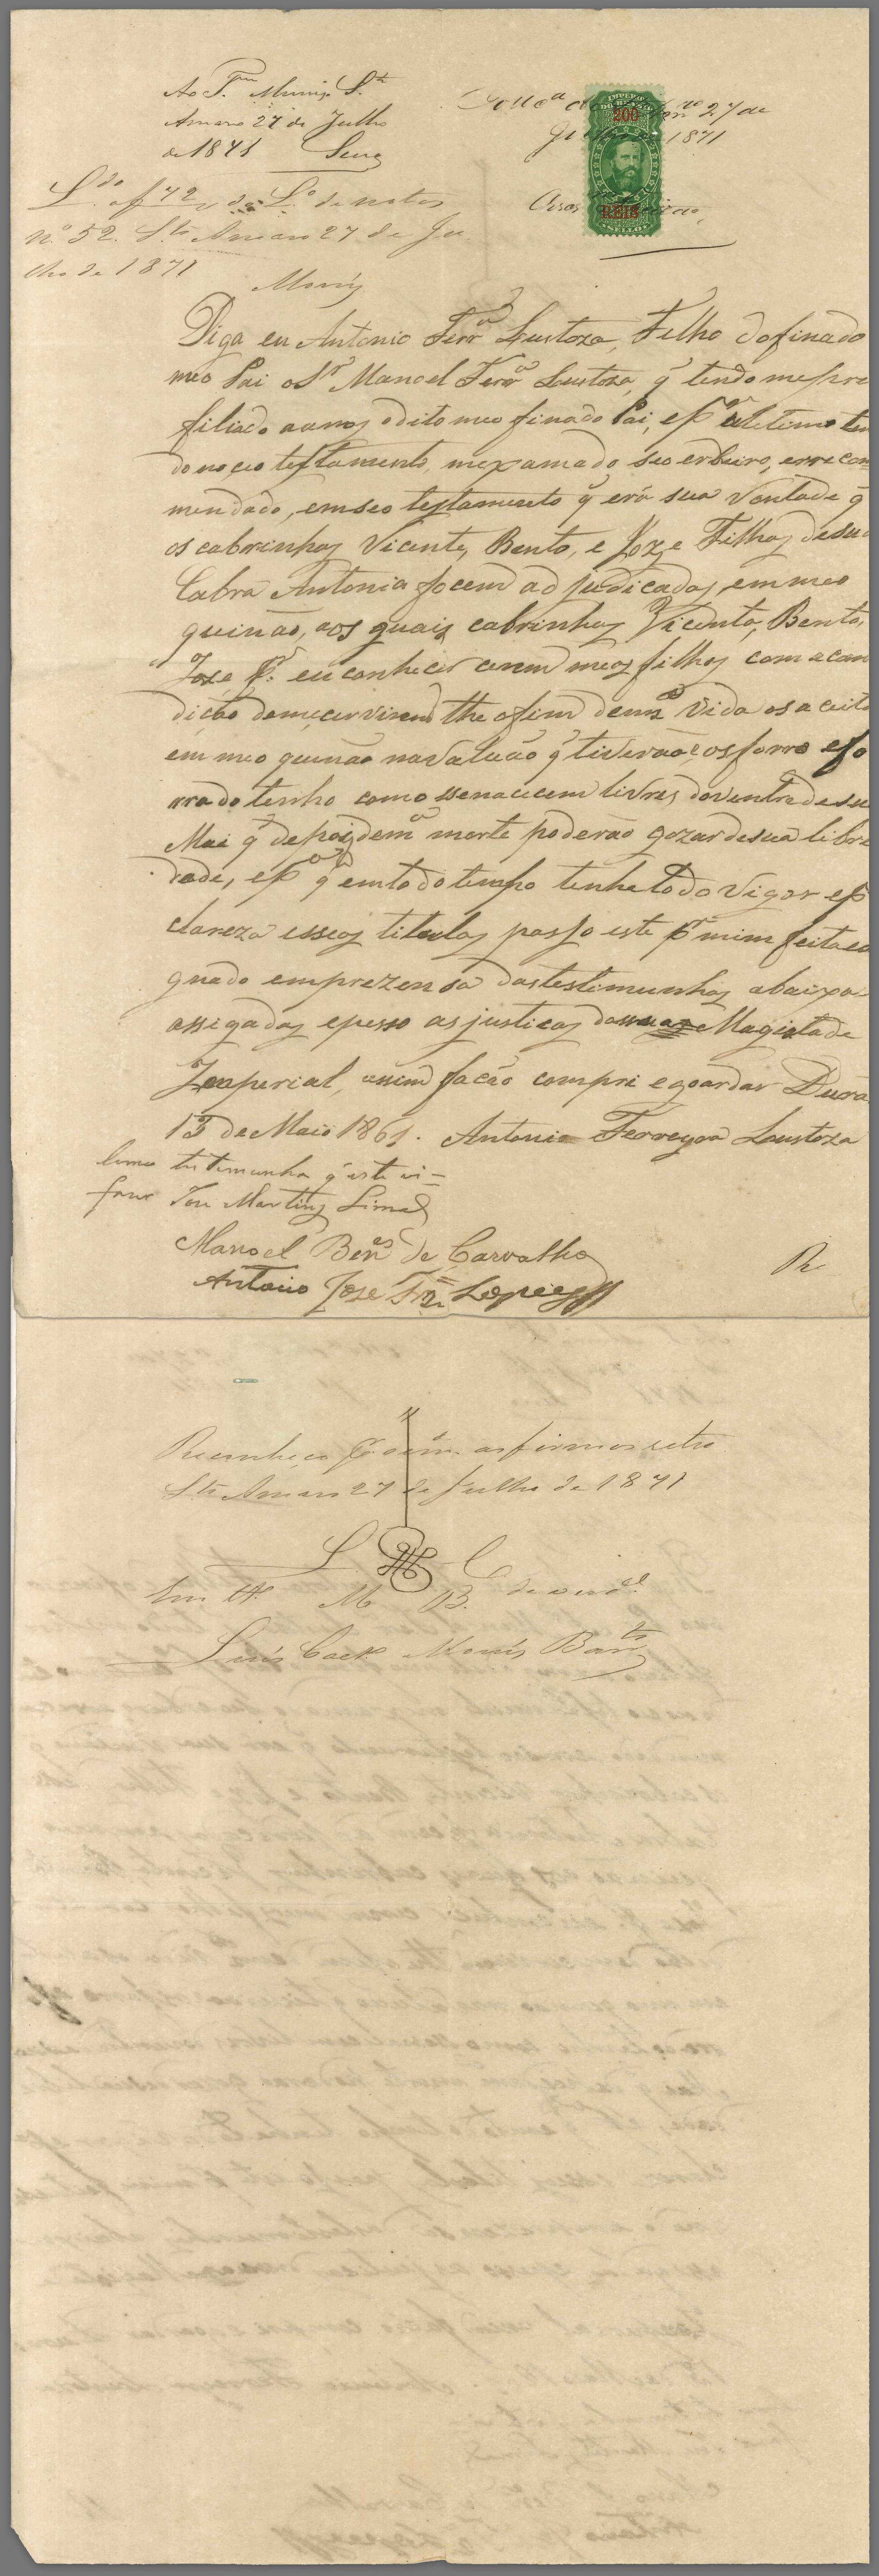 Ao T.am Muniz S.to
Amaro 27 de Julho
de 1871 Sena
N.o 1 200 rs 27 de
Julho 1871
IMPERIO
DO BRAZIL
200
REIS
SELLO
L.do af 72 do L.o de notas
n.o 52. S.to Amaro 27 de Ju
lho de 1871
Moniz
Digo eu Antonio Ferr.a Loustoza, Filho do finado
meo Pai o S.r Manoel Ferr.a Loustoza, q̃ tendo me pre
filiado a anos o dito meo finado Pai, e p.r ultimo ten
do no ceo testamento, mexamado seo erdeiro, erecom
mendado, emseo testamento q̃ erá sua Vontade q̃
os cabrinhos Vicente, Bento, e Joze Filhos desua
Cabra Antonia focem adjudicados, em meo
quinão, aos quais cabrinhos Vicente, Bento,
Joze p.r eu conhecer cerem meos filhos com a con
dicão demecervirem the ofim dem.a Vida os aceito
em meo quinão navaluão q̃ tiverão e os forro e fo
rrado tenho como senacecem livres doventre de sua
Mai q̃ depois dem.a morte poderão gozar de sua libre
dade, e p.a q̃ emtodo tempo tenhe todo Vigor e p.a
clareza esseos titulos passo este p.r mim feito e a
gnado emprezensa dastestimunhas abaixo
assigadas epesso as justicas dasuas Magistade
Imperial, assim facão compri e goardar Dura
13 de Maio 1861. Antonio Ferreyra Loustoza
Como testemunha q̃ este vi
faser Joze Martins Lima
Manoel Ben.es de Carvalho
Antonio Joze Frz Lopes
Reconheço as firmas retro
S.to Amaro 27 de Julho de 1871
Em tt.o M B. de verd.e
Luis Cack Moniz Barr.to